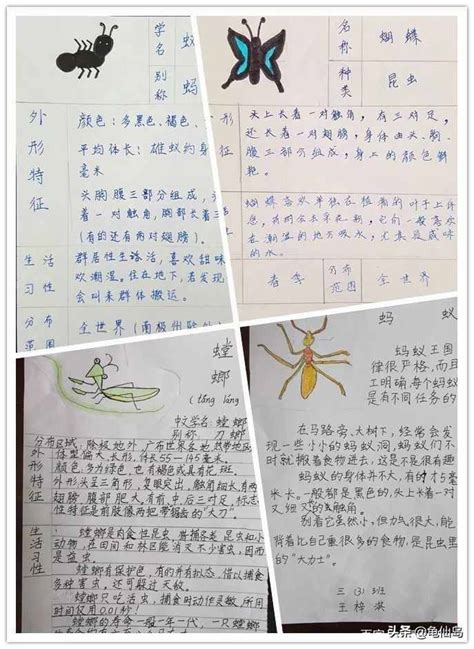 学名 蚁
别称 蚂
外形特征
颜色：多黑色、褐色、
平均体长：雄蚁约身
毫米
头胸腹三部分组成，头
着一对触角，胸部长着三
（有的还有两对翅膀）．
生活习性
群居性生活，喜欢甜味
欢潮湿。住在地下，若发现
会叫来群体搬运。
分布范围
全世界（南极州除外）
名称 蝴蝶
种类 昆虫
形
征
头上长着一对触角，有三对足，
还长着一对翅膀，身体由头、胸、
腹三部分组成，身上的颜色鲜
艳。
蝴蝶喜欢单独在植物的叶子上休
在潮湿的地方吸水，尤其是咸味
的水。
春季
分布范围
全世界
螳
螂
(tāng láng
中文学名：螳螂
别称：刀螂
分布区域：除极地外，广布世界各地热带地区
外形特征
体型偏大，长形，体长55—145毫米
颜色，多为绿色，也有褐色或具有花斑．
外形头呈三角形，复眼突出，触角细长，有两
翅膀，腹部肥大，有前、中、后三对足，标志
性特征是前肢像两把带锯齿的“大刀”．
生活习性
螳螂是肉食性昆虫，猎捕各类昆虫和小
动物，在田间和林区能消灭不少害虫，因而
是益虫．
螳螂有保护色，有的并有拟态，借以捕食
多种害虫，还可躲过天敌．
螳螂只吃活虫，捕食时动作灵敏，所用
时间仅用0.01秒！
螳螂的寿命一般一年一代，一只螳螂
蚂 蚁
蚂蚁王国
律很严格，而且
工明确，每个蚂蚁
是有不同任务的
在马路旁、大树下，经常会发
现一些小小的蚂蚁洞，蚂蚁们不
时就搬着食物进去，这是不是很有趣
蚂蚁的身体并不大，有的才5毫
米长。一般都是黑色的，头上长着一对
又细又 的触角。
别看它虽然小，但力气很大，能
背着比自己重很多的食物，是昆虫里
的“大力士”。
三（3）班
王梓淇
头条 @龟仙岛